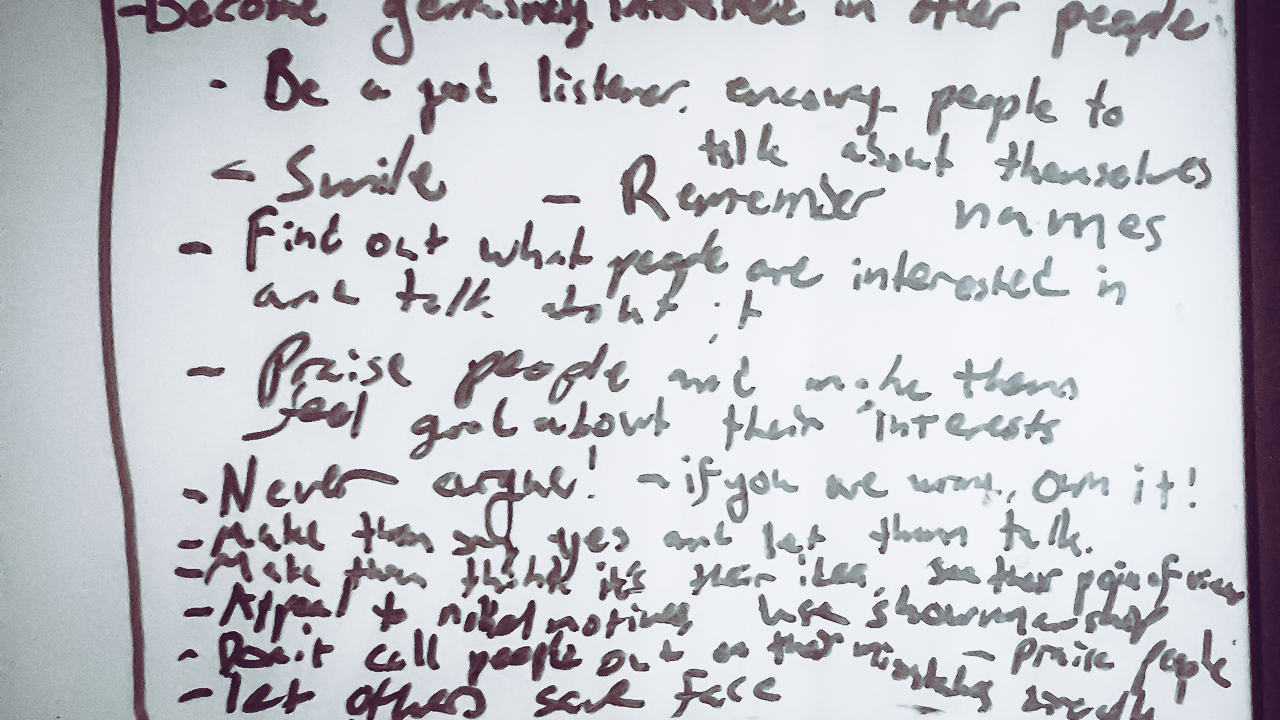 -Become genuinely interested in other people
· Be a good listener, encourage people to
talk about themselves
- Smile - Remember names
- Find out what people are interested in
and talk about it
- Praise people and make them
feel good about their interests
- Never argue! - if you are wrong, own it!
- Make them say yes and let them talk.
- Make them think it's their idea, see their point of view
- Appeal to nobel motives, use showmanship
- Don't call people out on their mistakes - Praise people
- let others save face